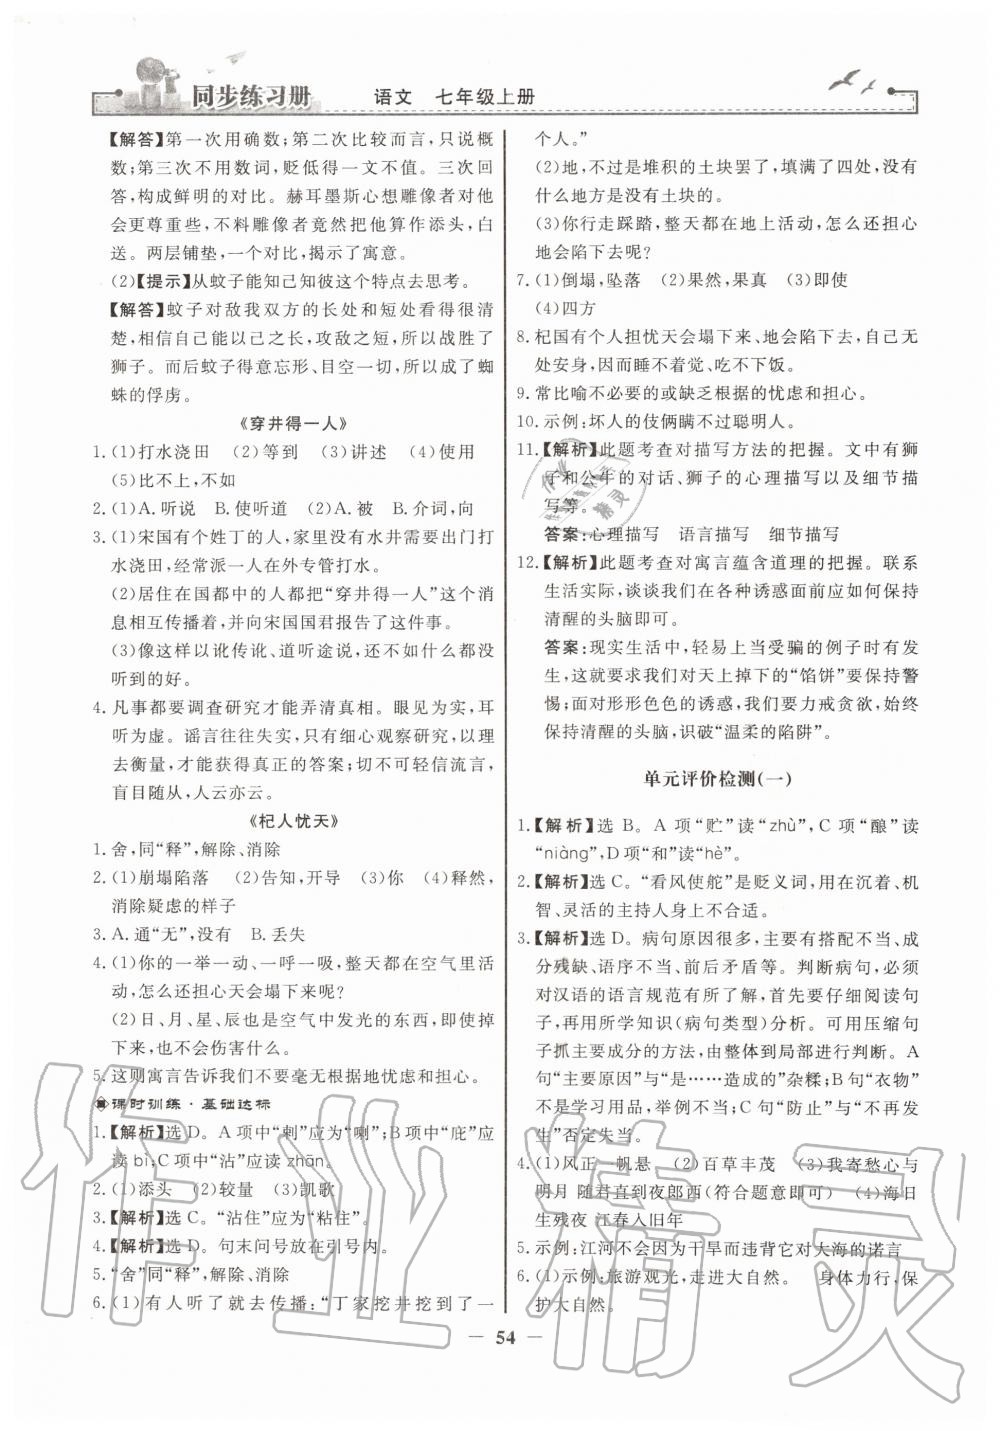 同步练习册
语文 七年级上册
【解答】第一次用确数;第二次比较而言,只说概
数;第三次不用数词,贬低得一文不值。三次回
答,构成鲜明的对比。赫耳墨斯心想雕像者对他
会更尊重些,不料雕像者竟然把他算作添头,白
送。两层铺垫,一个对比,揭示了寓意。
(2)【提示】从蚊子能知己知彼这个特点去思考。
【解答】蚊子对敌我双方的长处和短处看得很清
楚,相信自己能以己之长,攻敌之短,所以战胜了
狮子。而后蚊子得意忘形、目空一切,所以成了蜘
蛛的俘虏。
《穿井得一人》
1.(1)打水浇田 (2)等到 (3)讲述 (4)使用
(5)比不上,不如
2.(1)A.听说 B.使听道 (2)A.被 B.介词,向
3.(1)宋国有个姓丁的人,家里没有水井需要出门打
水浇田,经常派一人在外专管打水。
(2)居住在国都中的人都把“穿井得一人”这个消
息相互传播着,并向宋国国君报告了这件事。
(3)像这样以讹传讹、道听途说,还不如什么都没
听到的好。
4.凡事都要调查研究才能弄清真相。眼见为实,耳
听为虚。谣言往往失实,只有细心观察研究,以理
去衡量,才能获得真正的答案;切不可轻信流言,
盲目随从,人云亦云。
《杞人忧天》
1.舍,同“释”,解除、消除
2.(1)崩塌陷落 (2)告知,开导 (3)你 (4)释然,
消除疑虑的样子
3.A.通“无”,没有 B.丢失
4.(1)你的一举一动、一呼一吸,整天都在空气里活
动,怎么还担心天会塌下来呢?
(2)日、月、星、辰也是空气中发光的东西,即使掉
下来,也不会伤害什么。
5.这则寓言告诉我们不要毫无根据地忧虑和担心。
课时训练·基础达标
1.【解析】选 D。A 项中“刺”应为“喇”;B 项中“庇”应
读 bì;C 项中“沾”应读 zhān。
2.(1)添头 (2)较量 (3)凯歌
3.【解析】选 C。“沾住”应为“粘住”。
4.【解析】选 D。句末问号放在引号内。
5.“舍”同“释”,解除、消除
6.(1)有人听了就去传播:“丁家挖井挖到了一
个人。”
(2)地,不过是堆积的土块罢了,填满了四处,没有
什么地方是没有土块的。
(3)你行走踩踏,整天都在地上活动,怎么还担心
地会陷下去呢?
7.(1)倒塌,坠落 (2)果然,果真 (3)即使
(4)四方
8.杞国有个人担忧天会塌下来、地会陷下去,自己无
处安身,因而睡不着觉、吃不下饭。
9.常比喻不必要的或缺乏根据的忧虑和担心。
10.示例:坏人的伎俩瞒不过聪明人。
11.【解析】此题考查对描写方法的把握。文中有狮
子和公牛的对话、狮子的心理描写以及细节描
写等。
答案:心理描写 语言描写 细节描写
12.【解析】此题考查对寓言蕴含道理的把握。联系
生活实际,谈谈我们在各种诱惑面前应如何保持
清醒的头脑即可。
答案:现实生活中,轻易上当受骗的例子时有发
生,这就要求我们对天上掉下的“馅饼”要保持警
惕;面对形形色色的诱惑,我们要力戒贪欲,始终
保持清醒的头脑,识破“温柔的陷阱”。
单元评价检测(一)
1.【解析】选 B。A 项“贮”读“zhù”,C 项“酿”读
“niàng”,D 项“和”读“hè”。
2.【解析】选 C。“看风使舵”是贬义词,用在沉着、机
智、灵活的主持人身上不合适。
3.【解析】选 D。病句原因很多,主要有搭配不当、成
分残缺、语序不当、前后矛盾等。判断病句,必须
对汉语的语言规范有所了解,首先要仔细阅读句
子,再用所学知识(病句类型)分析。可用压缩句
子抓主要成分的方法,由整体到局部进行判断。A
句“主要原因”与“是……造成的”杂糅;B 句“衣物”
不是学习用品,举例不当;C 句“防止”与“不再发
生”否定失当。
4.(1)风正一帆悬 (2)百草丰茂 (3)我寄愁心与
明月 随君直到夜郎西(符合题意即可) (4)海日
生残夜 江春入旧年
5.示例:江河不会因为干旱而违背它对大海的诺言
6.(1)示例:旅游观光,走进大自然。 身体力行,保
护大自然。
54
作业精灵